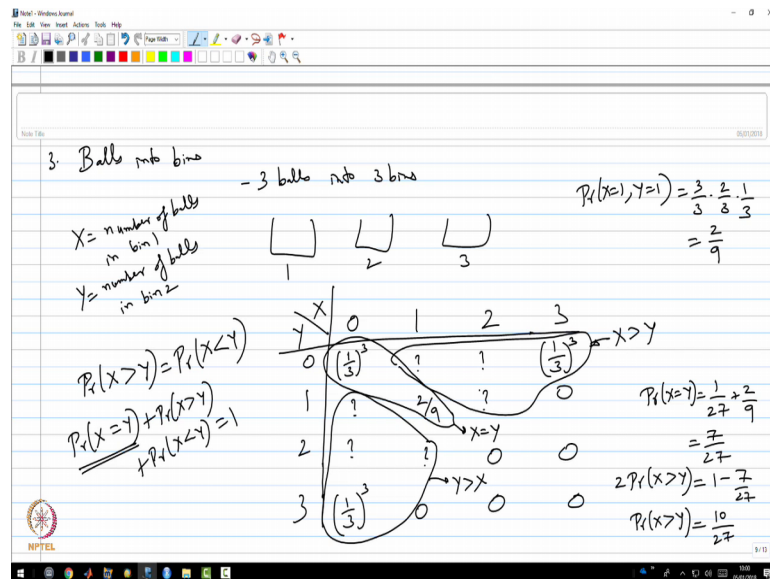 Note1 - Windows Journal
File Edit View Insert Actions Tools Help
Page Width
B I
Note Title
05/01/2018
3. Balls into bins
- 3 balls into 3 bins
X = number of balls
in bin 1
Y = number of balls
in bin 2
1 2 3
Pr(X=1, Y=1) = 3/3 · 2/3 · 1/3
= 2/9
Pr(X>Y) = Pr(X<Y)
Pr(X=Y) + Pr(X>Y)
+ Pr(X<Y) = 1
X 0 1 2 3
Y
0 (1/3)^3 ? ? (1/3)^3 X>Y
1 ? 2/9 ? 0
X=Y
2 ? ? 0 0
Y>X
3 (1/3)^3 0 0 0
Pr(X=Y) = 1/27 + 2/9
= 7/27
2Pr(X>Y) = 1 - 7/27
Pr(X>Y) = 10/27
NPTEL
9/13
10:00
05/01/2018